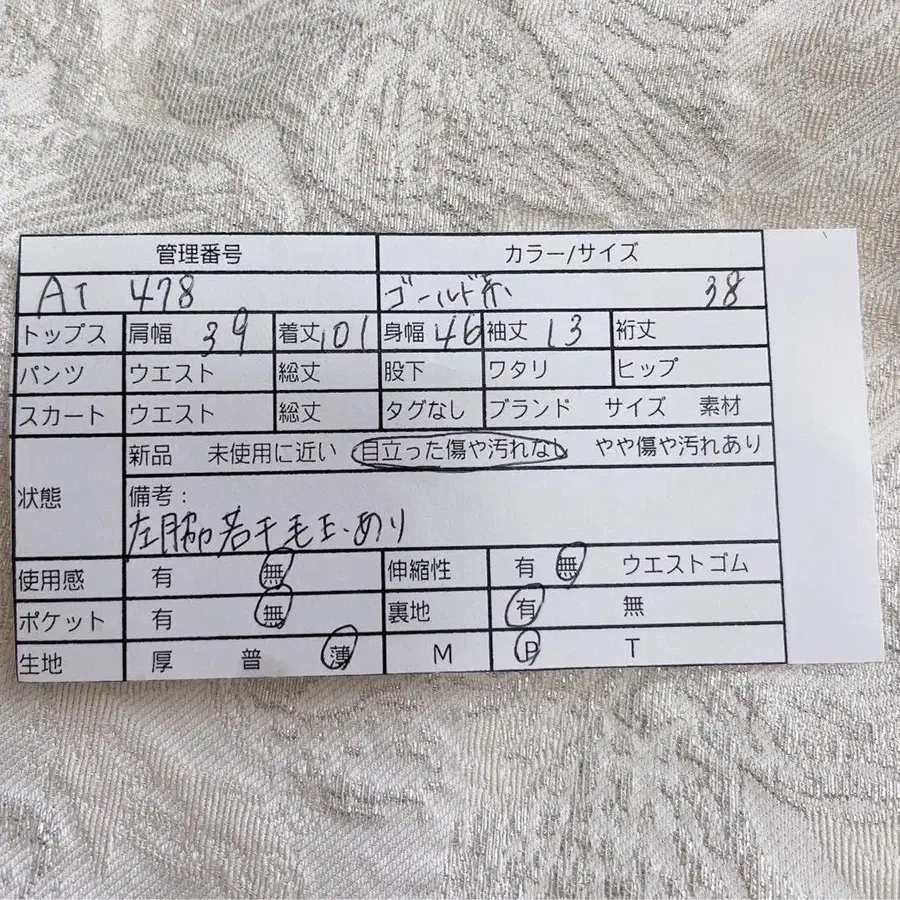 管理番号 カラー/サイズ
AT 478 ゴールド系 38
トップス 肩幅 39 着丈 101 身幅 46 袖丈 13 裄丈
パンツ ウエスト 総丈 股下 ワタリ ヒップ
スカート ウエスト 総丈 タグなし ブランド サイズ 素材
状態 新品 未使用に近い 目立った傷や汚れなし やや傷や汚れあり
備考:
左脇若干毛玉あり
使用感 有 無 伸縮性 有 無 ウエストゴム
ポケット 有 無 裏地 有 無
生地 厚 普 薄 M P T